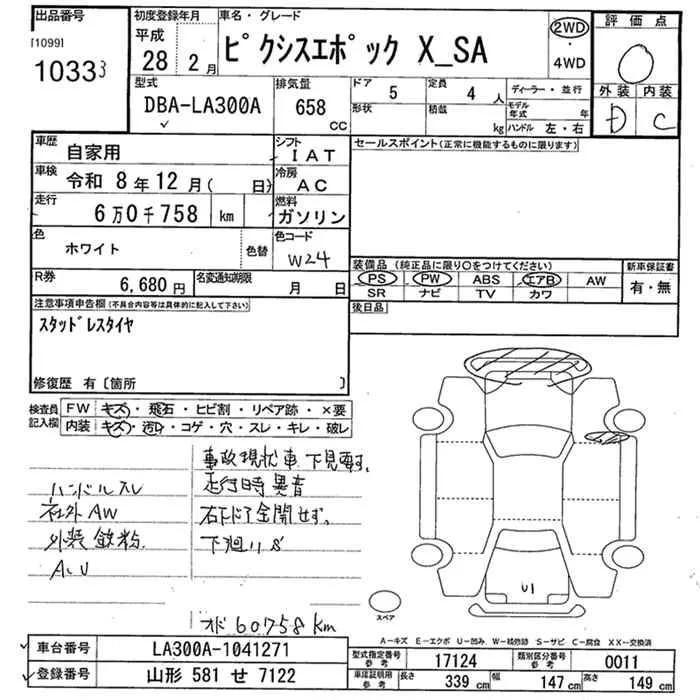 出品番号
[1099]
1033 3
初度登録年月
平成
28 2 月
車名・グレード
ピクシスエポック X_SA
2WD
・
4WD
評価点
0
外装 内装
D C
型式
DBA-LA300A
排気量
658
CC
ドア 5
定員 4 人
形状
積載 kg
ディーラー・並行
モデル年式 年
ハンドル 左・右
車歴 自家用
シフト IAT
車検 令和 8 年 12 月 ( 日)
冷房 AC
走行 6万0千758 km
燃料 ガソリン
色 ホワイト 色替
色コード W24
R券 6,680 円
名変通知期限 月 日
セールスポイント(正常に機能するものに限ります)
装備品 (純正品に限り○をつけてください)
PS PW ABS エアB AW
SR ナビ TV カワ
新車保証書
有・無
後日品
注意事項申告欄(不具合内容等は具体的に記入して下さい)
スタッドレスタイヤ
修復歴 有〔箇所 〕
検査員記入欄
FW キズ・飛石・ヒビ割・リペア跡・×要
内装 キズ・汚れ・コゲ・穴・スレ・キレ・破レ
事故現状車 下見要す。
ハンドルスレ 走行時異音
社外AW 右下ドア全開せず。
外装鉄粉 下廻りS
A、U
オド60758km
U1
スペア
A-キズ E-エクボ U-凹み W-補修跡 S-サビ C-腐食 XX-交換済
車台番号 LA300A-1041271
登録番号 山形 581 せ 7122
型式指定番号 参考 17124
類別区分番号 参考 0011
車庫証明用 参考 長さ 339 cm 幅 147 cm 高さ 149 cm